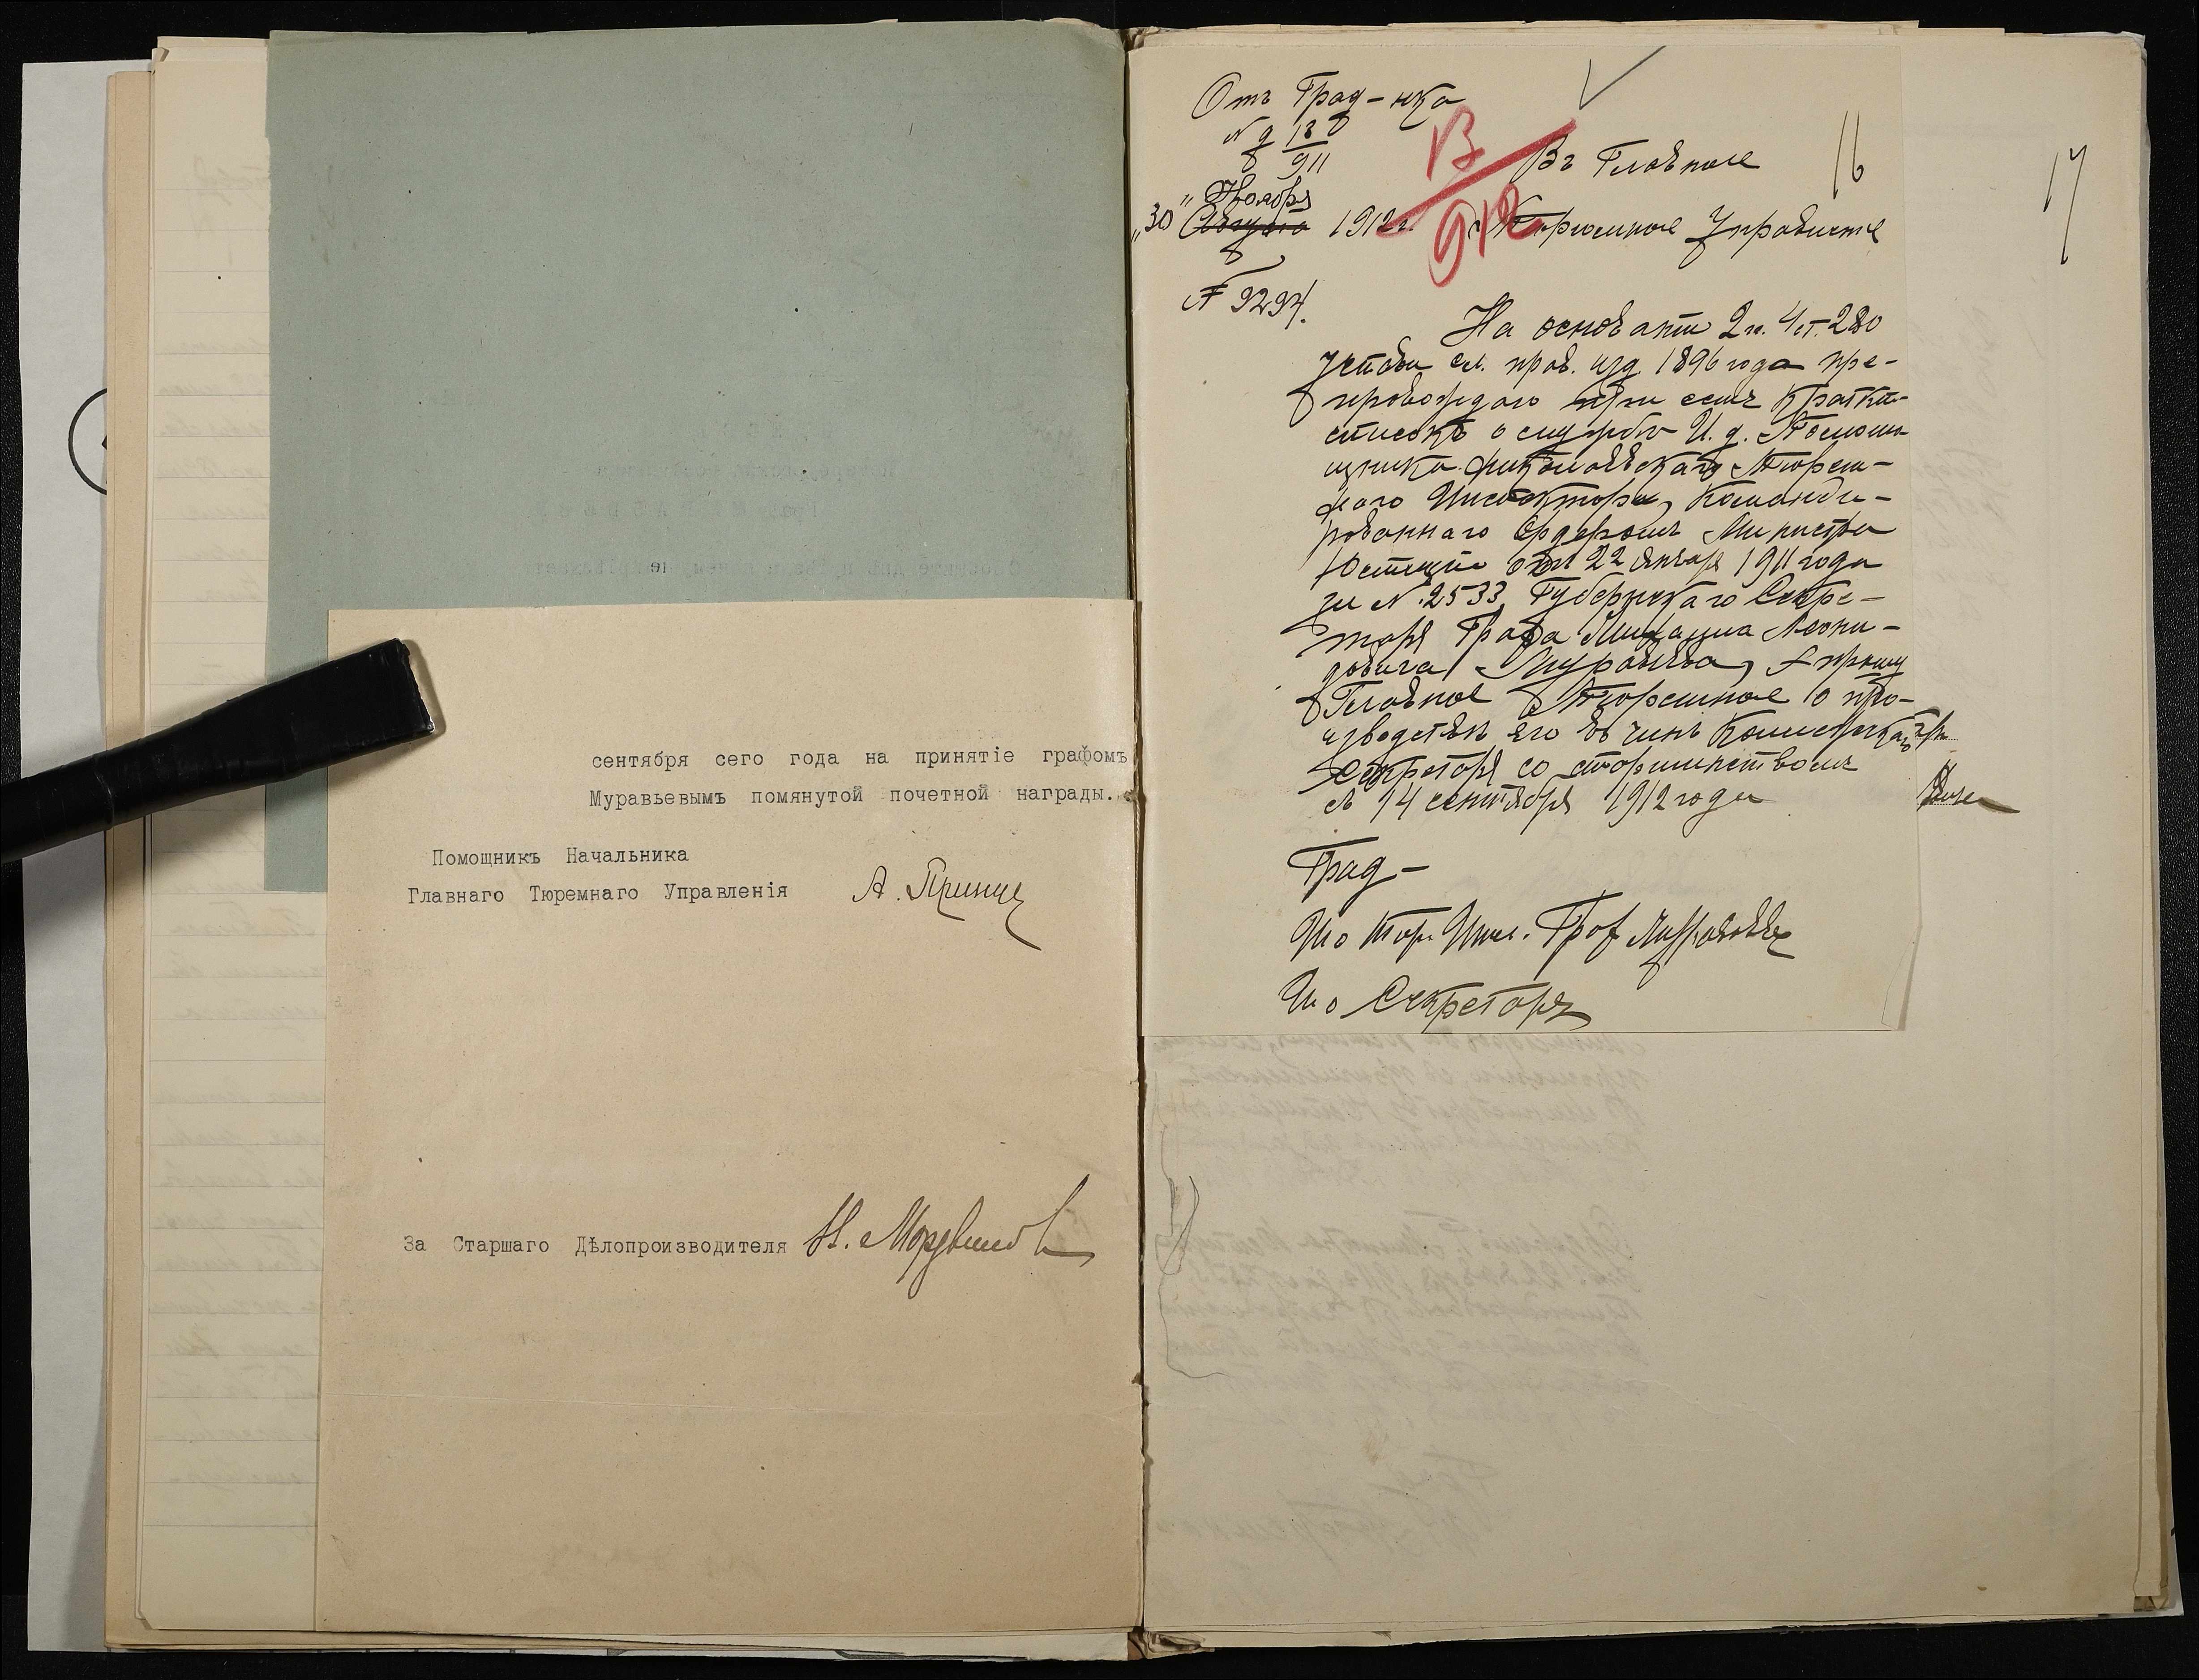 сентября сего года на принятіе графомъ
Муравьевымъ помянутой почетной награды.
Помощникъ Начальника
Главнаго Тюремнаго Управленія А. Принцъ
За Старшаго Дѣлопроизводителя Н.
Отъ Град-ка
№ д 18
911
Ноября
"30" Августа 1912 г.
№ 9294.
13
912
Въ Главное
Тюремное Управленіе
16
17
На основаніи 2 п. 4 ст. 280
Устава сл. прав. изд. 1896 года пре-
провождаю при семъ краткій
списокъ о службѣ И. д. Помощ-
щника Николаевскаго Тюрем-
наго Инспектора, командиро-
рованнаго Ордеромъ Министра
Юстиціи отъ 22 января 1911 года
за №. 2533, Губернскаго Секре-
таря Графа Михаила Леони-
довича Муравьева, прошу
Главное Тюремное о про-
изводствѣ его въ чинъ Коллежскаго
Секретаря со старшинствомъ
съ 14 сентября 1912 года
Град-
И о Тюр. Инсп. Граф Муравьевъ
И о Секретаря